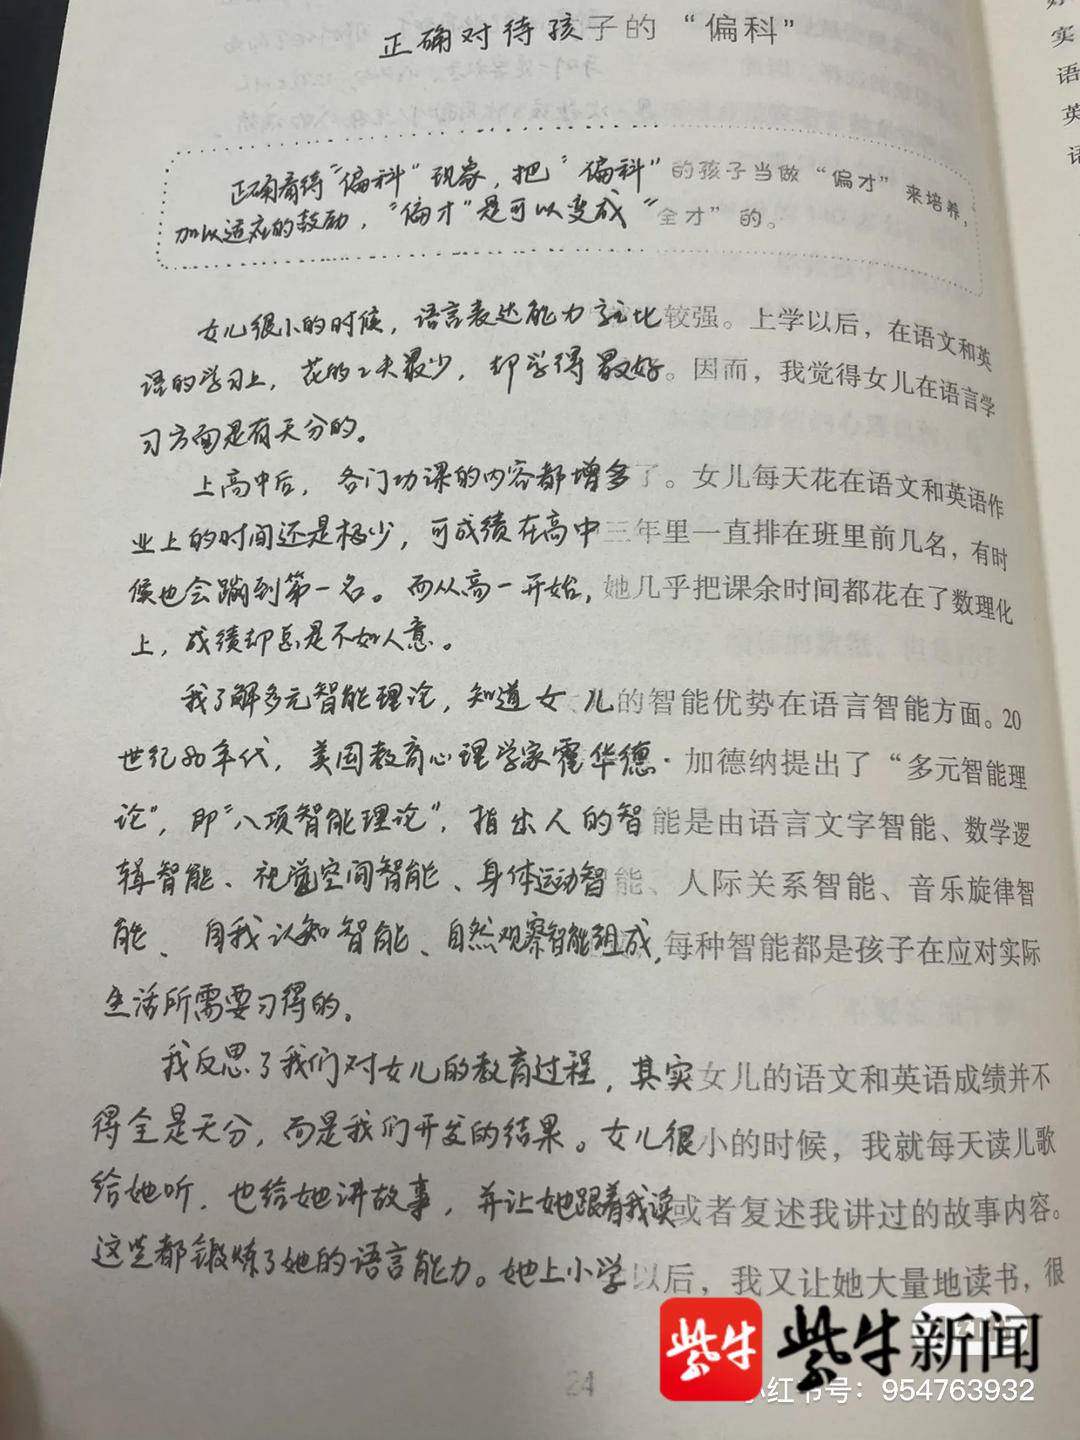 正确对待孩子的“偏科”
正确看待“偏科”现象，把“偏科”的孩子当做“偏才”来培养，
加以适应的鼓励，“偏才”是可以变成“全才”的。
女儿很小的时候，语言表达能力就比较强。上学以后，在语文和英
语的学习上，花的工夫最少，却学得最好。因而，我觉得女儿在语言学
习方面是有天分的。
上高中后，各门功课的内容都增多了。女儿每天花在语文和英语作
业上的时间还是极少，可成绩在高中三年里一直排在班里前几名，有时
候也会蹦到第一名。而从高一开始，她几乎把课余时间都花在了数理化
上，成绩却总是不如人意。
我了解多元智能理论，知道女儿的智能优势在语言智能方面。20
世纪80年代，美国教育心理学家霍华德·加德纳提出了“多元智能理
论”，即“八项智能理论”，指出人的智能是由语言文字智能、数学逻
辑智能、视觉空间智能、身体运动智能、人际关系智能、音乐旋律智
能、自我认知智能、自然观察智能组成，每种智能都是孩子在应对实际
生活所需要习得的。
我反思了我们对女儿的教育过程，其实女儿的语文和英语成绩并不
得全是天分，而是我们开发的结果。女儿很小的时候，我就每天读儿歌
给她听，也给她讲故事，并让她跟着我读或者复述我讲过的故事内容。
这些都锻炼了她的语言能力。她上小学以后，我又让她大量地读书，很
24
紫牛
紫牛新闻
小红书号：954763932
实
语
英
语